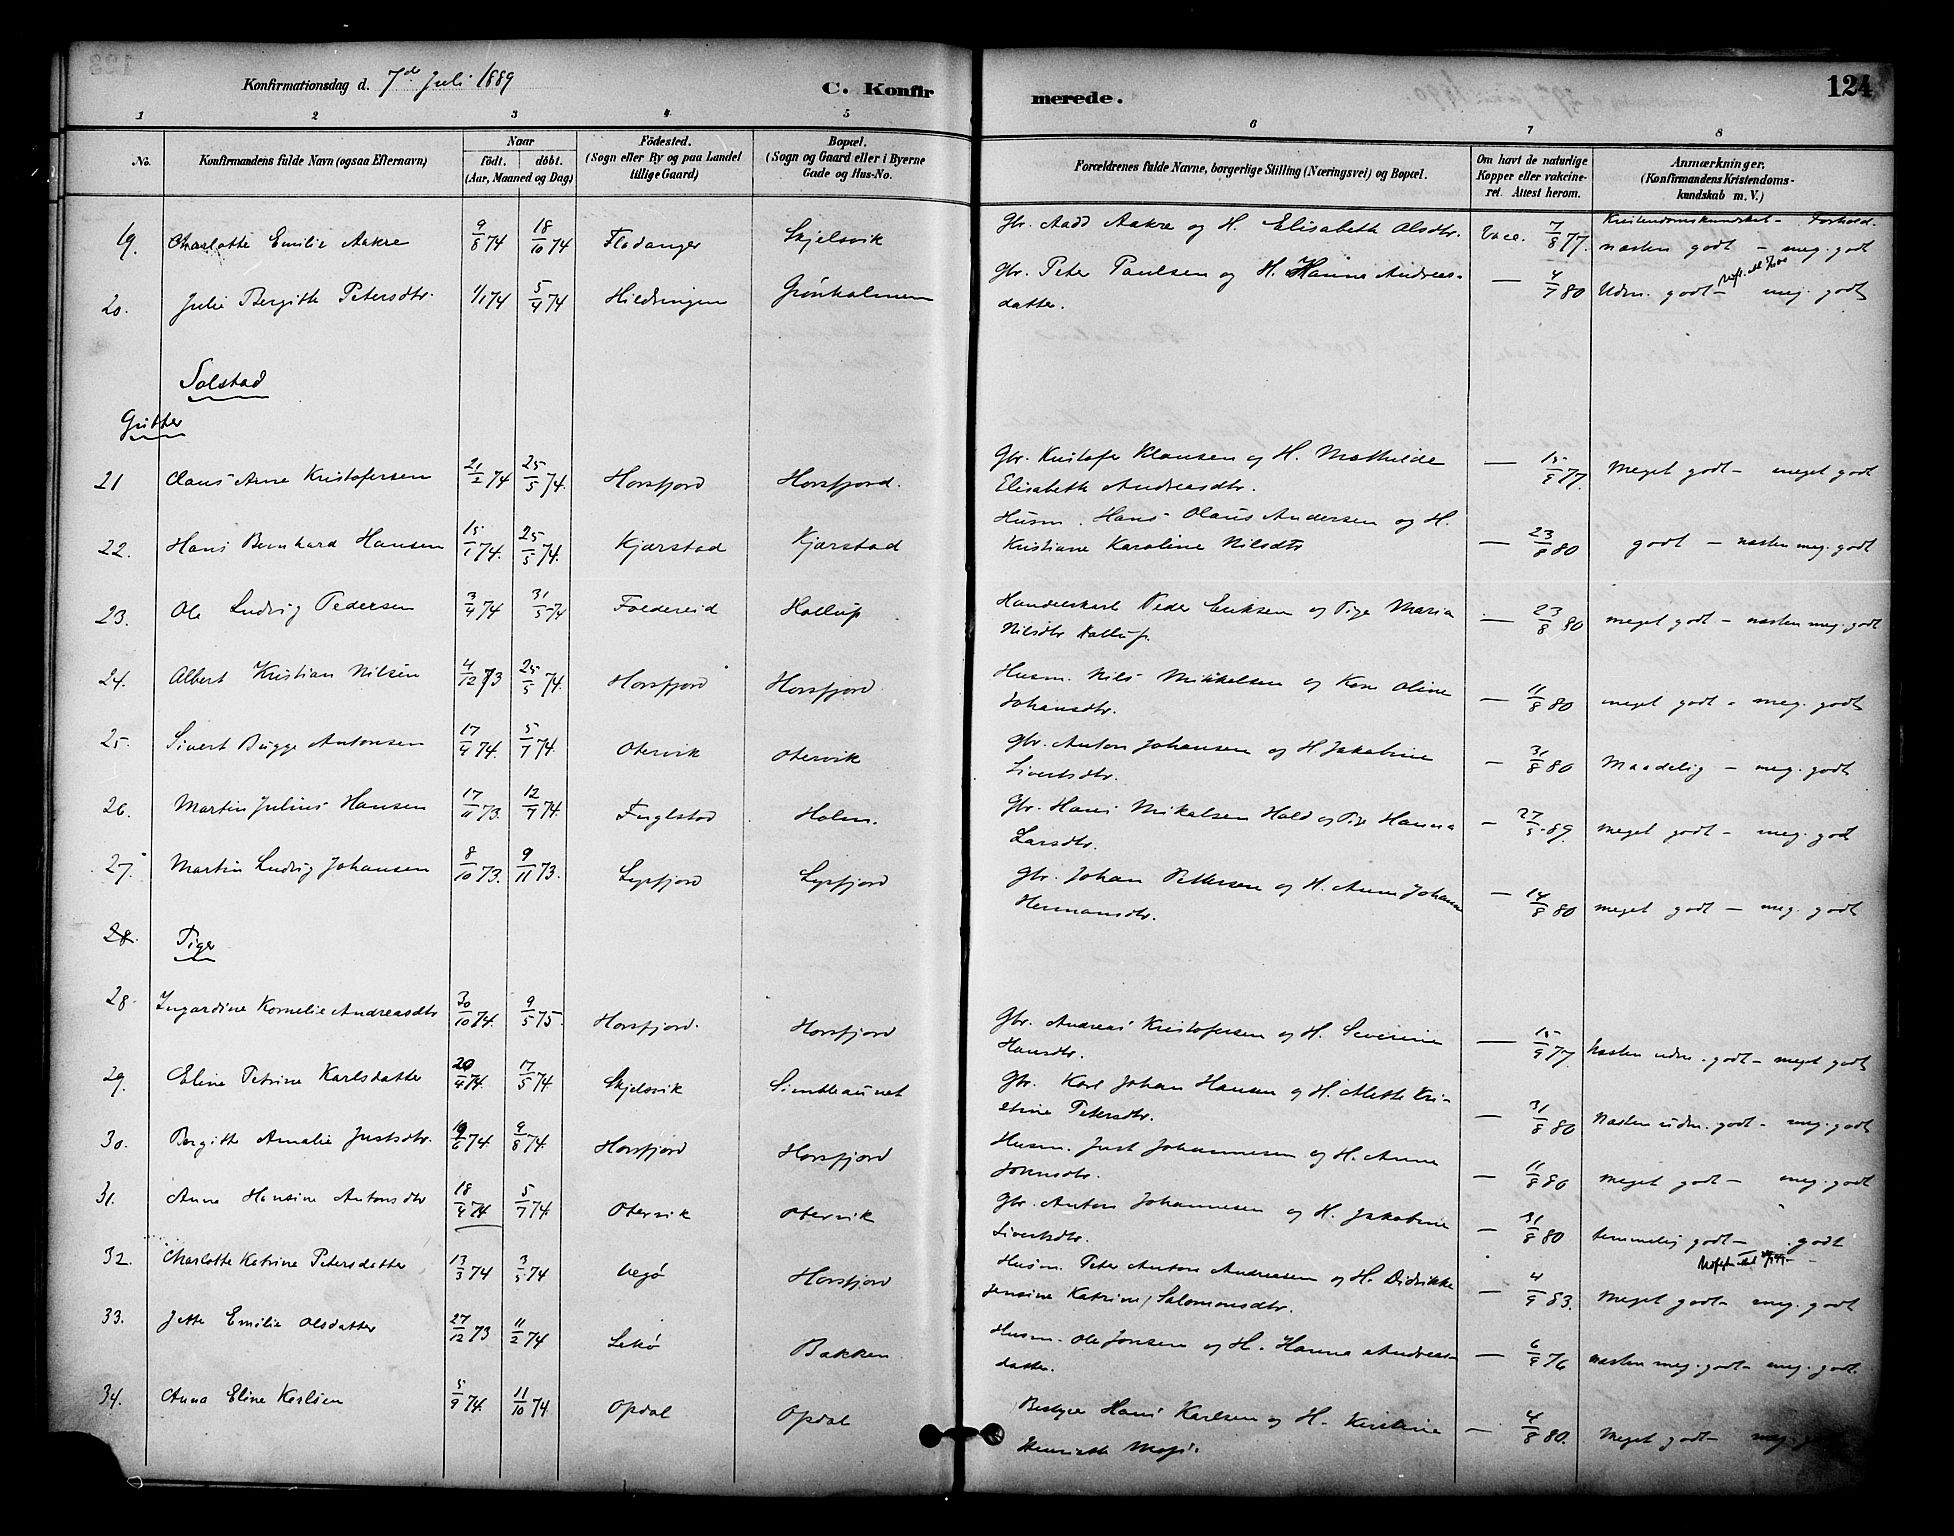 Konfirmationsdag d. 7de Juli 1889
C. Konfir
merede.
124
1 2 3 4 5 6 7 8
No.
Konfirmandens fulde Navn (ogsaa Efternavn)
Naar
födt. döbt.
(Aar, Maaned og Dag)
Födested.
(Sogn eller By og paa Landet
tillige Gaard)
Bopæl.
(Sogn og Gaard eller i Byerne
Gade og Hus-No.
Forældrenes fulde Navne, borgerlige Stilling (Næringsvei) og Bopæl.
Om havt de naturlige
Kopper eller vakcine-
ret. Attest herom.
Anmærkninger.
(Konfirmandens Kristendoms-
kundskab m. V.)
Kristendomskundskab - Forhold.
19. Charlotte Emilie Aakre 9/8 74 18/10 74 Flodanger Skjelsvik Gbr. Aadd Aakre og H. Elisabeth Olsdtr. Vacc. 7/8 77. næsten godt - meg. godt
20. Julie Bergitte Petersdtr. 1/1 74 5/4 74 Hildringen Grönholmen Gbr. Peter Paulsen og H. Hanna Andreas-
datter. — 4/7 80 Udm. godt - meg. godt
Solstad
Gutter
21 Claus Arne Kristofersen 21/2 74 25/5 74. Horsfjord Horsfjord. Gbr. Kristofer Klausen og H. Mathilde
Elisabeth Andreasdtr. — 15/9 77. Meget godt - meget godt
22. Hans Bernhard Hansen 15/1 74. 25/5 74. Kjærstad Kjærstad Husm. Hans Olaus Andersen og H.
Kristiane Karoline Nilsdtr — 23/8 80 godt - næsten meg. godt
23. Ole Ludvig Pedersen 3/4 74 31/5 74 Foldereid Hallup Handelskarl Peder Eriksen og Pige Maria
Nilsdtr Kallup. — 23/8 80 meget godt - næsten meg. godt
24. Albert Kristian Nilsen 4/12 73 25/5 74. Horsfjord Horsfjord. Husm. Nils Mikkelsen og Kone Oline
Johansdtr. — 11/8 80 meget godt - meg. godt
25. Sivert Bugge Antonsen 17/4 74. 5/7 74. Otervik Otervik Gbr. Anton Johansen og H. Jakobine
Sivertsdtr. — 31/8 80 Maadelig - meg. godt
26. Martin Julius Hansen 17/11 73. 12/7 74. Fuglstad Holm. Gbr. Hans Mikalsen Hald og Pige Hanna
Larsdtr. — 27/5 89. meget godt - meg. godt
27. Martin Ludvig Johansen 8/10 73. 9/11 73. Lysfjord Lysfjord Gbr. Johan Pettersen og H. Anne Johanna
Hermansdtr. — 14/8 80 meget godt - meg. godt
28. Piger
28 Ingardine Kornelie Andreasdtr 30/10 74. 9/5 75. Horsfjord. Horsfjord Gbr. Andreas Kristofersen og H. Severine
Hansdtr. — 15/9 77. næsten udm. godt - meget godt
29. Eline Petrine Karlsdatter 20/4 74. 17/5 74. Skjelsvik Simbleaunet Gbr. Karl Johan Hansen og H. Mette Kri-
stine Petersdtr. — 31/8 80 Næsten udm. godt - meg. godt
30. Bergitte Amalie Justsdtr. 19/6 74 9/8 74. Horsfjord Horsfjord Husm. Just Johannesen og H. Anne
Jonsdtr. — 11/8 80 meget godt - meg. godt
31. Anne Hansine Antonsdtr 18/4 74 5/7 74. Otervik Otervik Gbr. Anton Johannesen og H. Jakobine
Sivertsdtr. — 31/8 80 temmelig godt - godt
32. Charlotte Katrine Petersdatter 13/3 74 3/5 74 Vegø Horsfjord Husm. Peter Anton Andreasen og H. Didrikke
Jensine Katrine Salomonsdtr. — 4/9 83. Meget godt - meg. godt
33. Jette Emilie Olsdatter 27/12 73 11/2 74 Lekø Bakken Husm. Ole Jonsen og H. Hanna Andreas-
datter. — 6/9 76 næsten meg. godt - meg. godt.
34. Anna Eline Karlsen 5/9 74. 11/10 74 Opdal Opdal Bestyrer Hans Karlsen og H. Kristine
Henriette — 4/8 80. Meget godt - meg.